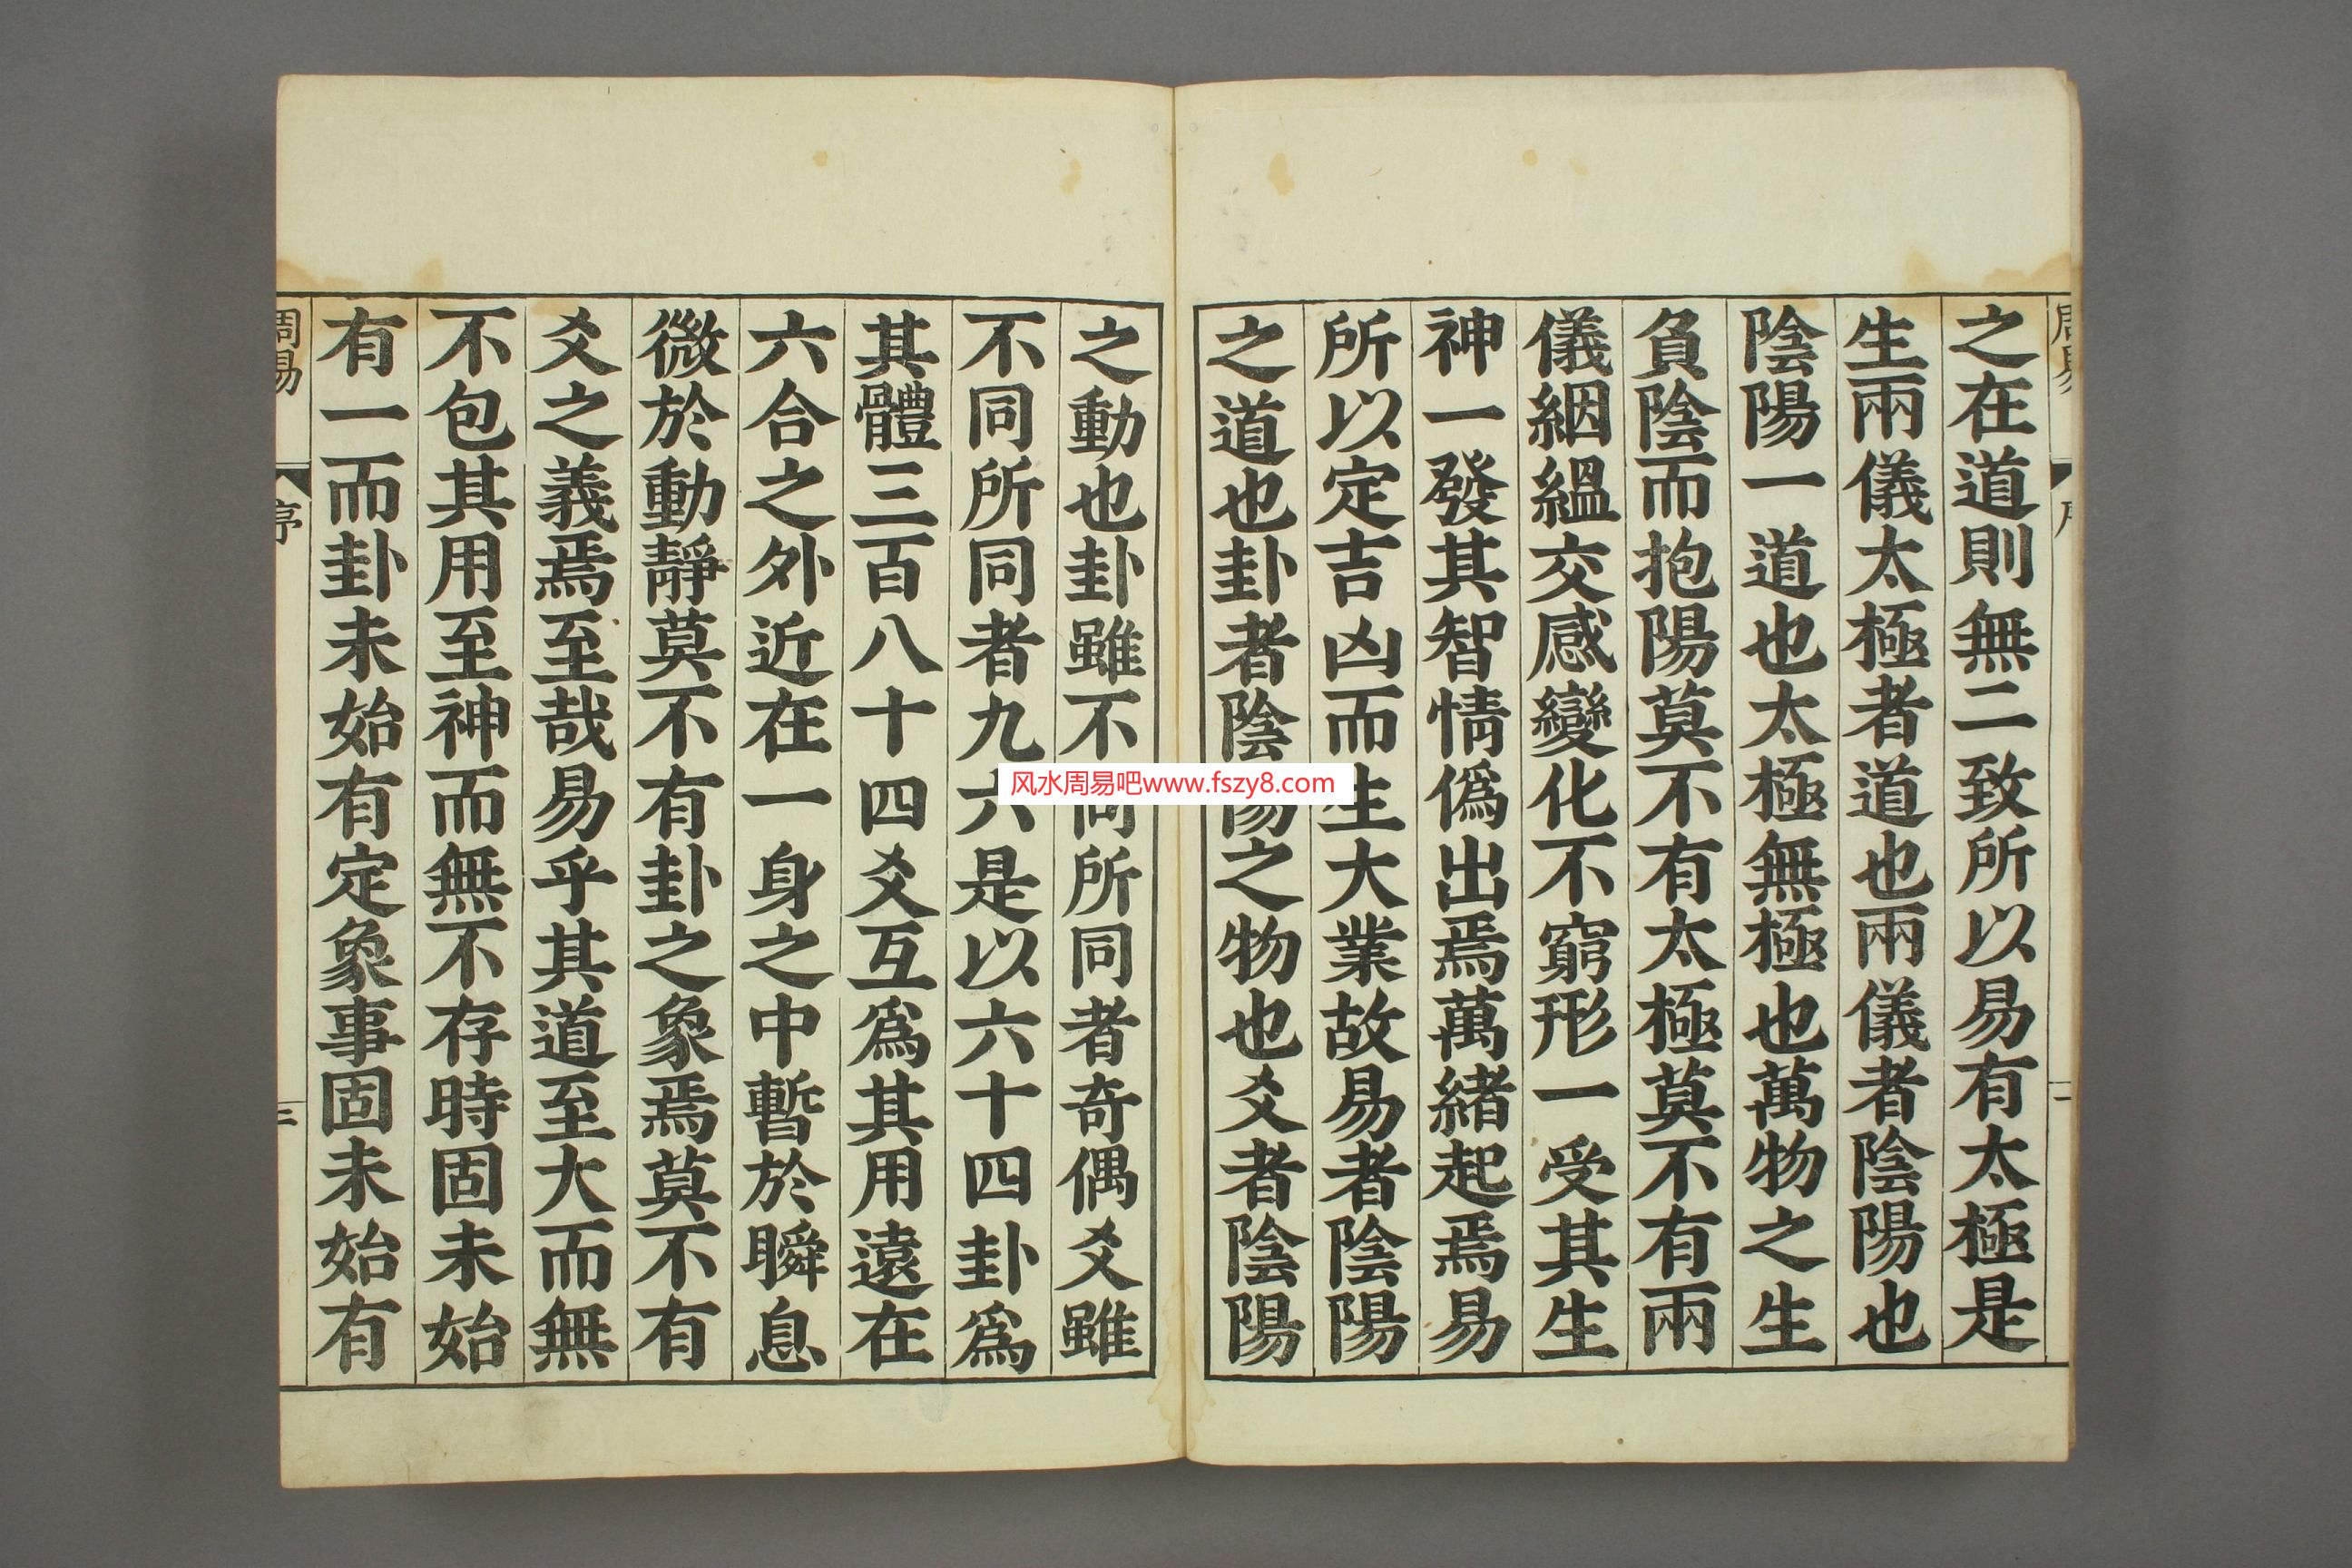 之在道則無二致所以易有太極是
生兩儀太極者道也兩儀者陰陽也
陰陽一道也太極無極也萬物之生
負陰而抱陽莫不有太極莫不有兩
儀絪縕交感變化不窮形一受其生
神一發其智情僞出焉萬緒起焉易
所以定吉凶而生大業故易者陰陽
之道也卦者陰陽之物也爻者陰陽
之動也卦雖不同所同者奇偶爻雖
不同所同者九六是以六十四卦爲
其體三百八十四爻互爲其用遠在
六合之外近在一身之中暫於瞬息
微於動靜莫不有卦之象焉莫不有
爻之義焉至哉易乎其道至大而無
不包其用至神而無不存時固未始
有一而卦未始有定象事固未始有
周易
序
三
风水周易吧www.fszy8.com